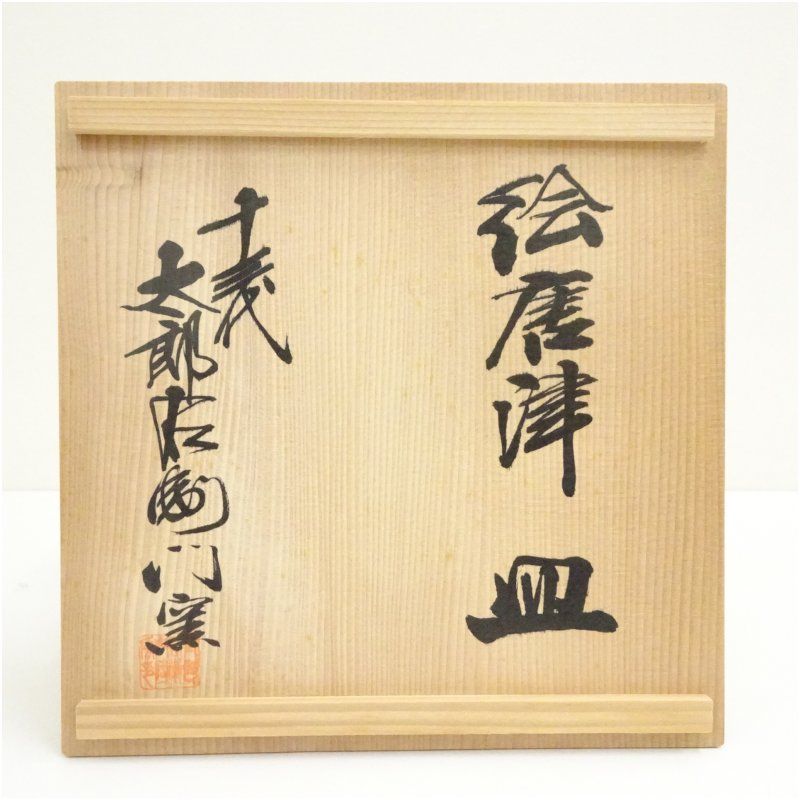 絵唐津 皿
十代
太郎右衛門窯